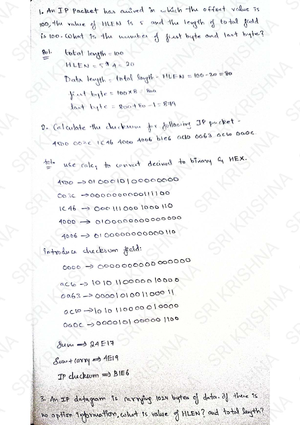 1. An IP Packet has arrived in which the offset value is
100, the value of HLEN is 5 and the length of total field
is 100. What is the number of first byte and last byte?
Sol: total length = 100
HLEN = 5*4 = 20
Data length = total length - HLEN = 100-20 = 80
first byte = 100*8 = 800
last byte = 800+80-1 = 879
2. Calculate the checksum for following IP packet.
4500 003C 1C46 4000 4006 B1E6 AC10 0063 AC10 000C
Sol: use calcy to convert decimal to binary & HEX.
4500 → 0100010100000000
003C → 0000000000111100
1C46 → 0001110001000110
4000 → 0100000000000000
4006 → 0100000000000110
Introduce checksum field:
0000 → 0000000000000000
AC10 → 1010110000010000
0063 → 0000000001100011
AC10 → 1010110000010000
000C → 0000000000001100
Sum ⇒ 24E17
Sum + carry ⇒ 4E19
IP checksum ⇒ B1E6
3. An IP datagram is carrying 1024 bytes of data. If there is
no option information, what is value of HLEN? and total length?
SRI KAKINA